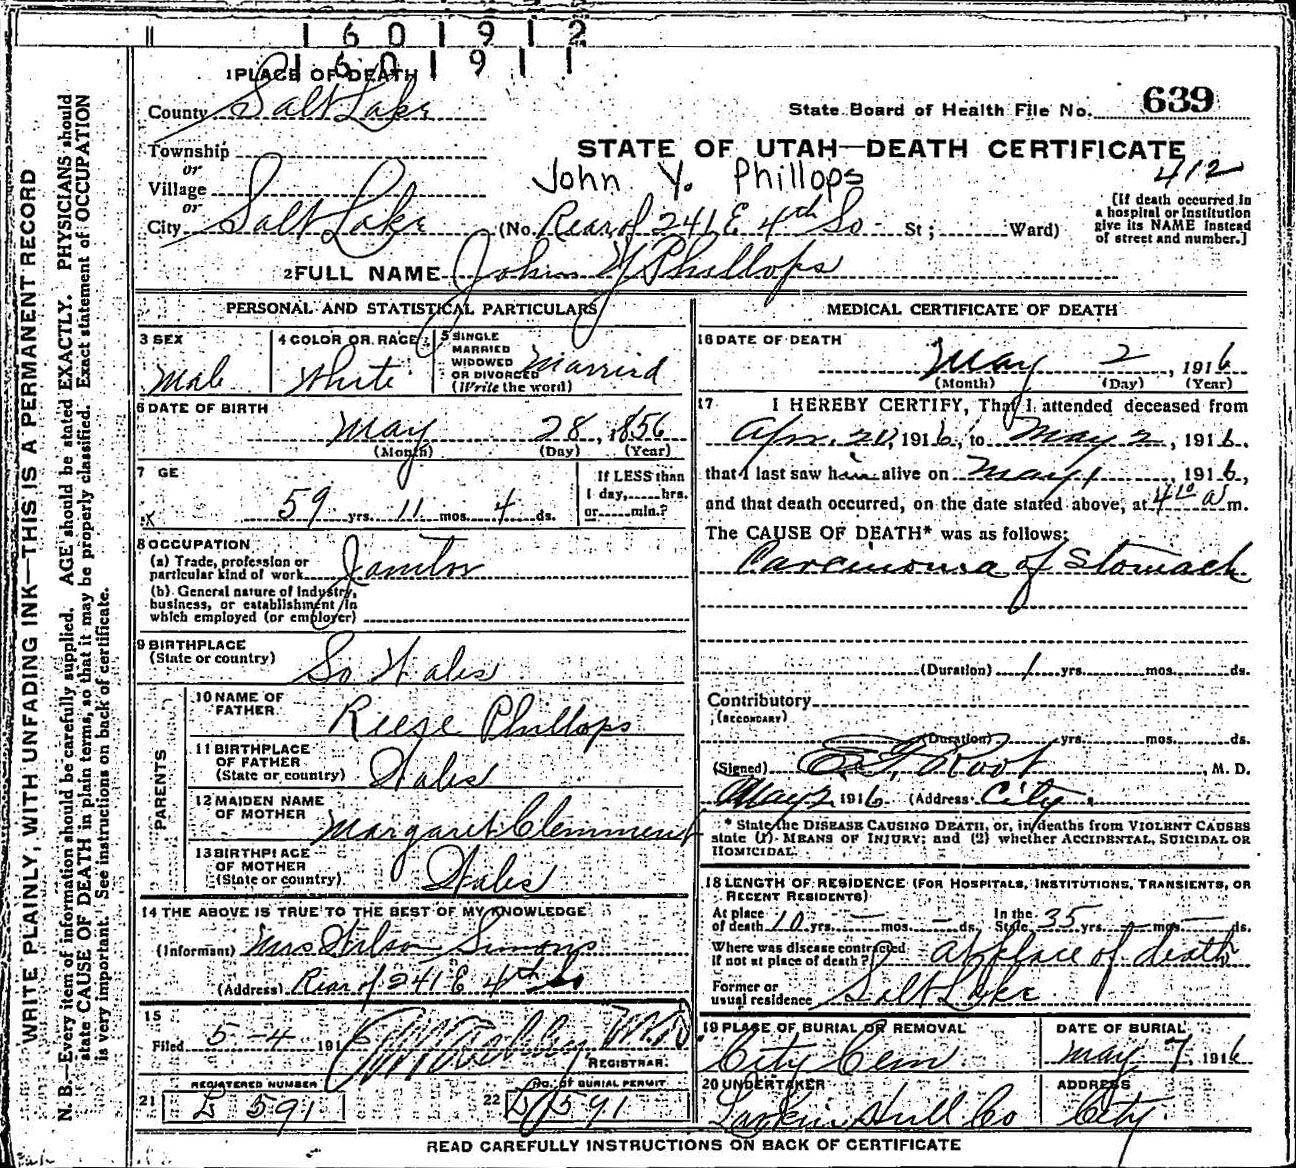 1601912
1601911
1 PLACE OF DEATH
County Salt Lake
State Board of Health File No. 639
Township
or
Village
or
City Salt Lake
STATE OF UTAH—DEATH CERTIFICATE
412
John Y. Phillops
(No. Rear of 241 E 4th So St; Ward)
[If death occurred in
a hospital or institution
give its NAME instead
of street and number.]
2 FULL NAME John Y Phillops
PERSONAL AND STATISTICAL PARTICULARS
3 SEX
Male
4 COLOR OR RACE
White
5 SINGLE
MARRIED
WIDOWED
OR DIVORCED
(Write the word)
Married
6 DATE OF BIRTH
May 28, 1856
(Month) (Day) (Year)
7 GE
59 yrs. 11 mos. 4 ds.
If LESS than
1 day,......hrs.
or......min.?
8 OCCUPATION
(a) Trade, profession or
particular kind of work Janitor
(b) General nature of industry,
business, or establishment in
which employed (or employer)
9 BIRTHPLACE
(State or country)
So Wales
PARENTS
10 NAME OF
FATHER
Reese Phillops
11 BIRTHPLACE
OF FATHER
(State or country)
Wales
12 MAIDEN NAME
OF MOTHER
Margaret Clemmens
13 BIRTHPLACE
OF MOTHER
(State or country)
Wales
14 THE ABOVE IS TRUE TO THE BEST OF MY KNOWLEDGE
(Informant) Mrs Wilson Simons
(Address) Rear of 241 E 4th So
15
Filed 5-4 1916
M.D.
REGISTRAR.
REGISTERED NUMBER
21 L 591
NO. OF BURIAL PERMIT
22 L 591
MEDICAL CERTIFICATE OF DEATH
16 DATE OF DEATH
May 2, 1916
(Month) (Day) (Year)
17 I HEREBY CERTIFY, That I attended deceased from
Apr. 20, 1916, to May 2, 1916,
that I last saw him alive on May 1, 1916,
and that death occurred, on the date stated above, at 4 10 a m.
The CAUSE OF DEATH* was as follows:
Carcinoma of Stomach
(Duration) 1 yrs. mos. ds.
Contributory
(SECONDARY)
(Duration) yrs. mos. ds.
(Signed) E. F. Root, M. D.
May 2 1916 (Address City.
* State the DISEASE CAUSING DEATH, or, in deaths from VIOLENT CAUSES
state (1) MEANS OF INJURY; and (2) whether ACCIDENTAL, SUICIDAL OR
HOMICIDAL.
18 LENGTH OF RESIDENCE (FOR HOSPITALS, INSTITUTIONS, TRANSIENTS, OR
RECENT RESIDENTS)
At place
of death 10 yrs. — mos. — ds.
In the
State 35 yrs. — mos. — ds.
Where was disease contracted
if not at place of death? at place of death
Former or
usual residence Salt Lake
19 PLACE OF BURIAL OR REMOVAL
City Cem
DATE OF BURIAL
May 7, 1916
20 UNDERTAKER
Larkin Hull Co
ADDRESS
City.
READ CAREFULLY INSTRUCTIONS ON BACK OF CERTIFICATE
WRITE PLAINLY, WITH UNFADING INK—THIS IS A PERMANENT RECORD
N. B.—Every item of information should be carefully supplied. AGE should be stated EXACTLY. PHYSICIANS should
state CAUSE OF DEATH in plain terms, so that it may be properly classified. Exact statement of OCCUPATION
is very important. See instructions on back of certificate.